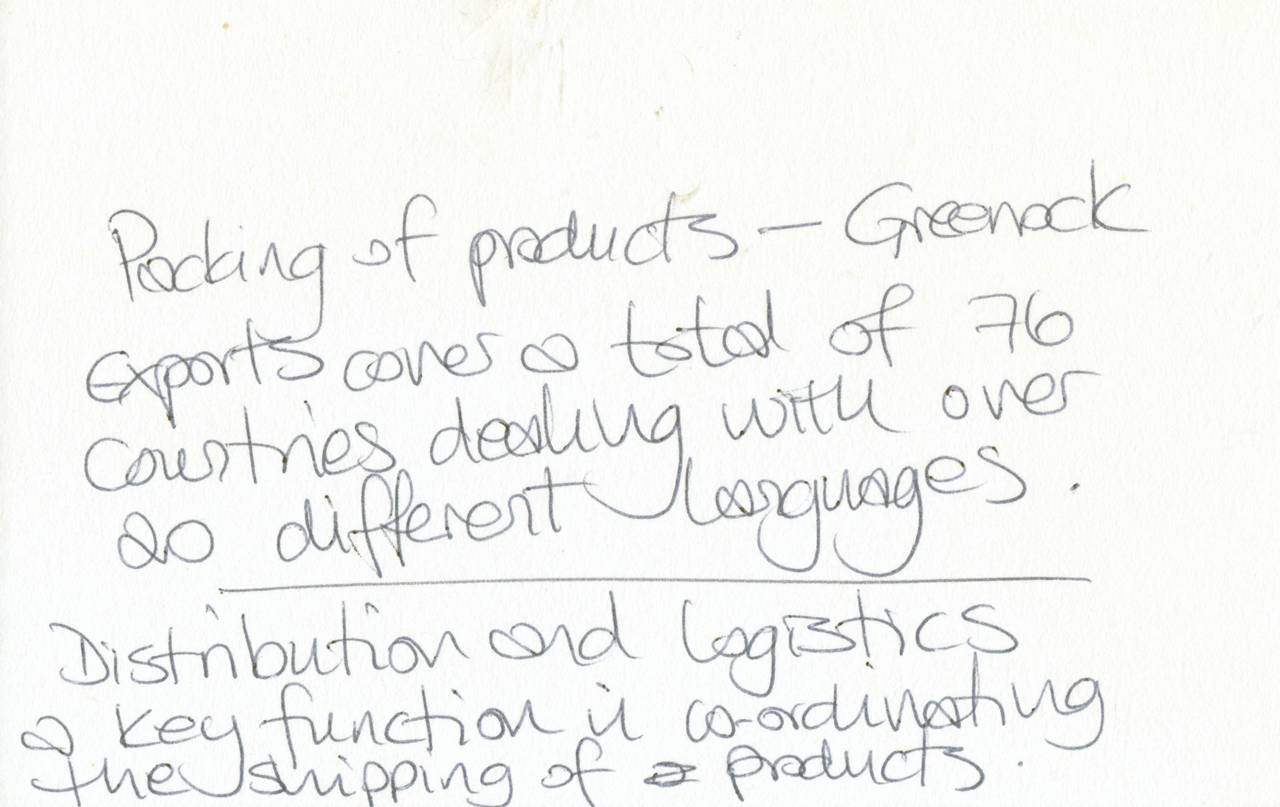 Packing of products – Greenock
Exports cover a total of 76
Countries dealing with over
20 different languages.
Distribution and logistics
a key function in co-ordinating
the shipping of products.